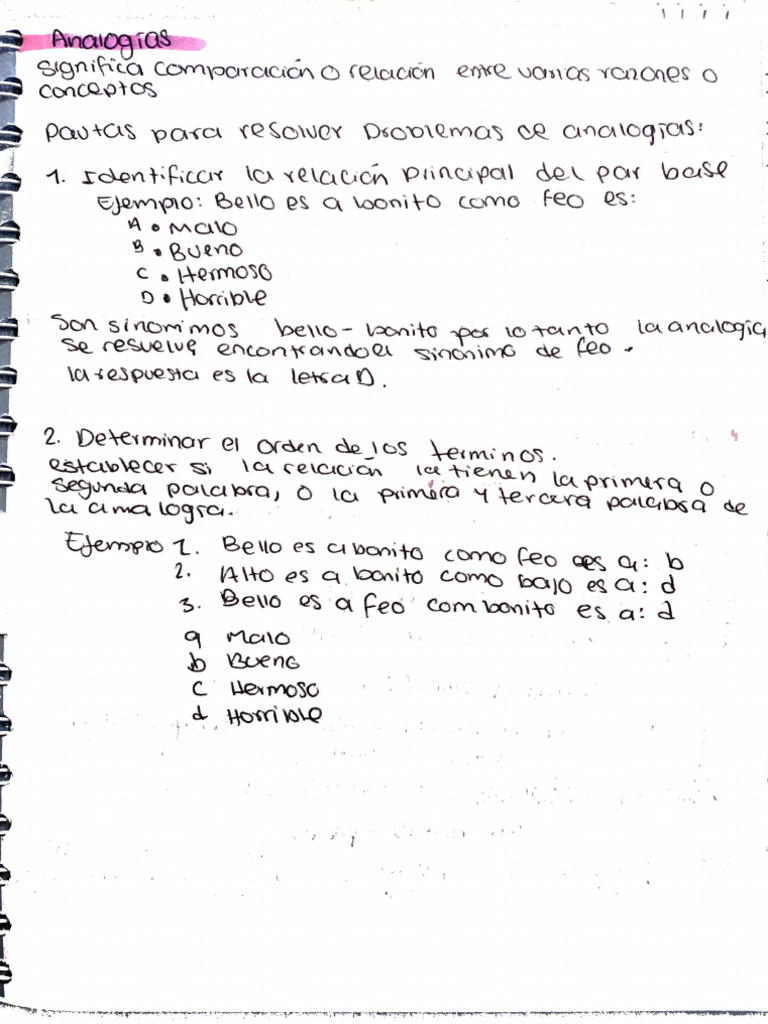 Analogías
significa comparación o relación entre varias razones o
conceptos
Pautas para resolver Problemas de analogías:
1. Identificar la relación principal del par base
Ejemplo: Bello es a bonito como feo es:
A • Malo
B • Bueno
C • Hermoso
D • Horrible
Son sinonimos bello - bonito por lo tanto la analogia
se resuelve encontrando el sinónimo de feo.
la respuesta es la letra D.
2. Determinar el orden de los terminos.
establecer si la relación la tienen la primera o
segunda palabra, o la primera y tercera palabra de
la analogía.
Ejemplo 1. Bello es a bonito como feo es a: b
2. Alto es a bonito como bajo es a: d
3. Bello es a feo com bonito es a: d
a Malo
b Bueno
c Hermoso
d Horrible